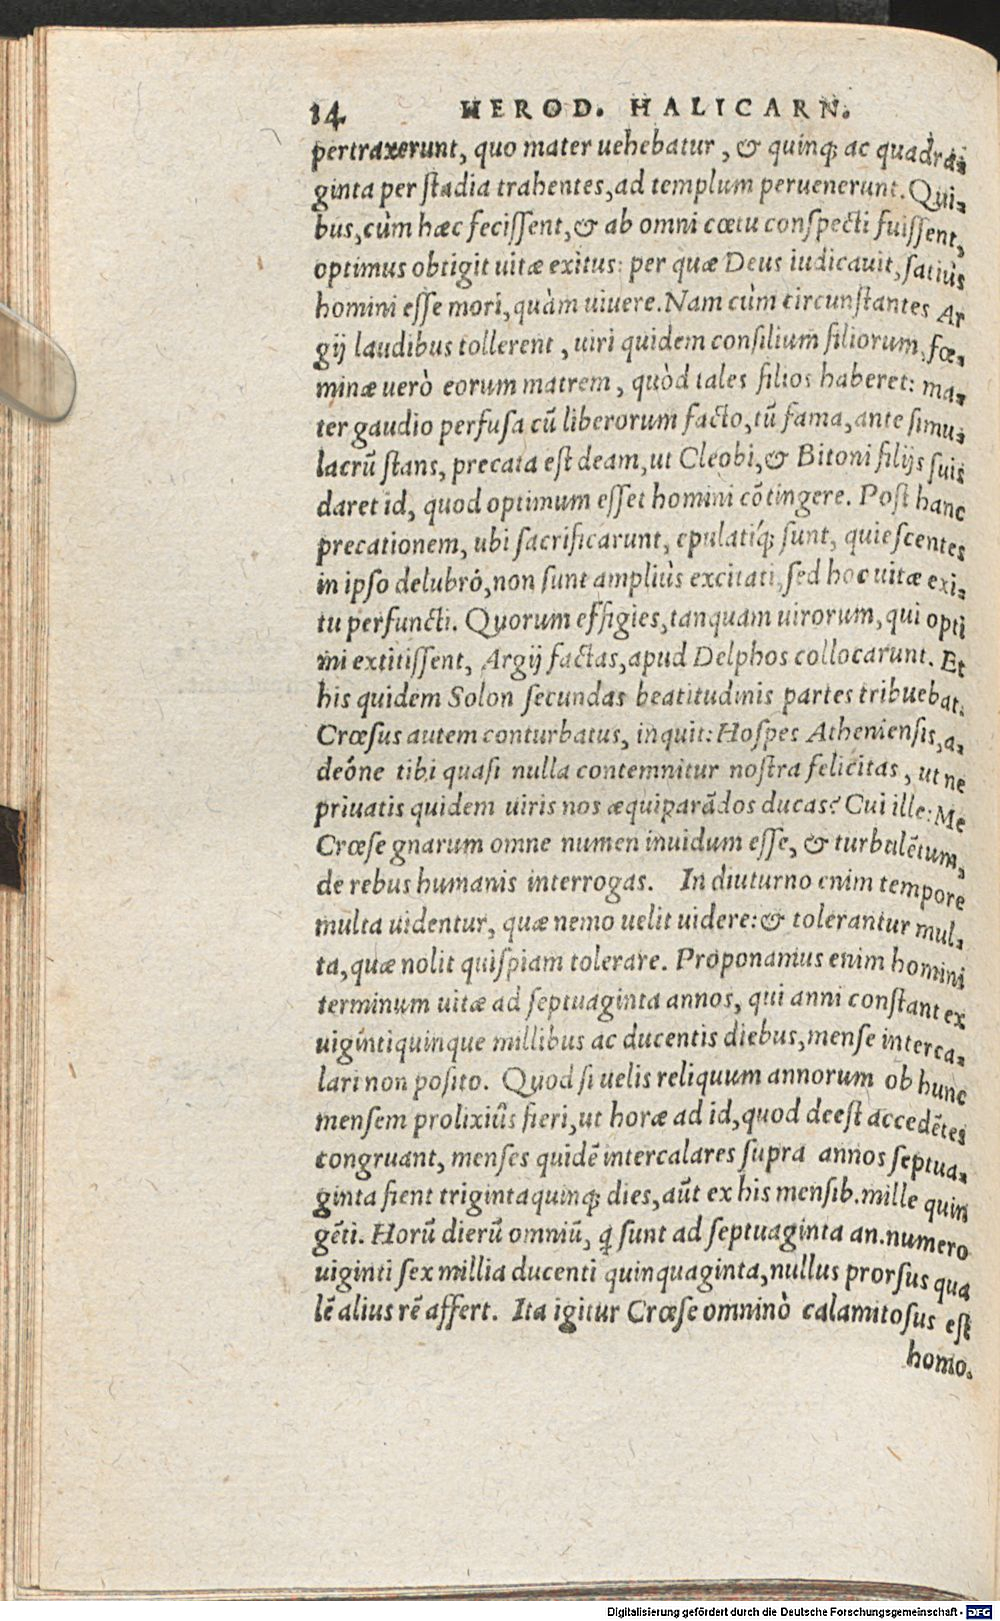 14 HEROD. HALICARN.
pertraxerunt, quo mater uehebatur, & quinq; ac quadra-
ginta per ſtadia trahentes, ad templum peruenerunt. Qui-
bus, cùm hæc feciſſent, & ab omni cœtu conſpecti fuiſſent,
optimus obtigit uitæ exitus: per quæ Deus iudicauit, ſatiùs
homini eſſe mori, quàm uiuere. Nam cùm circunſtantes Ar
gij laudibus tollerent, uiri quidem conſilium filiorum, fœ-
minæ uerò eorum matrem, quòd tales filios haberet: ma-
ter gaudio perfuſa cũ liberorum facto, tũ fama, ante ſimu-
lacrũ ſtans, precata eſt deam, ut Cleobi, & Bitoni filijs ſuis
daret id, quod optimum eſſet homini cõtingere. Poſt hanc
precationem, ubi ſacrificarunt, epulatíq; ſunt, quieſcentes
in ipſo delubró, non ſunt ampliùs excitati, ſed hoc uitæ exi-
tu perfuncti. Quorum effigies, tanquam uirorum, qui opti
mi extitiſſent, Argij factas, apud Delphos collocarunt. Et
his quidem Solon ſecundas beatitudinis partes tribuebat.
Crœſus autem conturbatus, inquit: Hoſpes Athenienſis, a-
deóne tibi quaſi nulla contemnitur noſtra felicitas, ut ne
priuatis quidem uiris nos æquiparãdos ducas? Cui ille: Me
Crœſe gnarum omne numen inuidum eſſe, & turbulẽtum,
de rebus humanis interrogas. In diuturno enim tempore
multa uidentur, quæ nemo uelit uidere: & tolerantur mul-
ta, quæ nolit quiſpiam tolerare. Proponamus enim homini
terminum uitæ ad ſeptuaginta annos, qui anni conſtant ex
uigintiquinque millibus ac ducentis diebus, menſe interca-
lari non poſito. Quod ſi uelis reliquum annorum ob hunc
menſem prolixiûs fieri, ut horæ ad id, quod deeſt accedẽtes
congruant, menſes quidẽ intercalares ſupra annos ſeptua-
ginta fient trigintaquinq; dies, aũt ex his menſib. mille quin
gẽti. Horũ dierũ omniũ, q̃ ſunt ad ſeptuaginta an. numero
uiginti ſex millia ducenti quinquaginta, nullus prorſus qua
lẽ alius rẽ affert. Ita igitur Crœſe omninò calamitoſus eſt
homo.
Digitalisierung gefördert durch die Deutsche Forschungsgemeinschaft - DFG